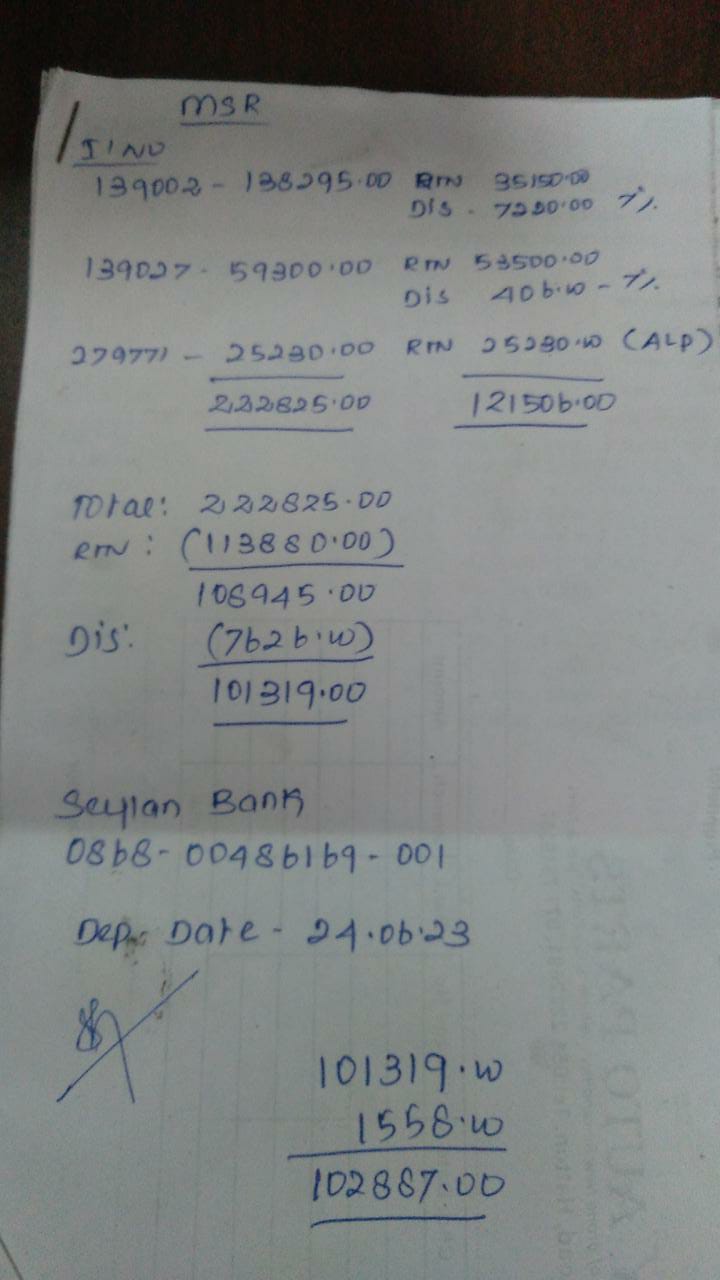 MSR
I'NO
139002 - 138295.00 RTN 35150.00
DIS - 7220.00 7%
139027 - 59300.00 RTN 53500.00
DIS 406.00 - 7%
279771 - 25230.00 RTN 25230.00 (ALP)
222825.00 121506.00
Total: 222825.00
RTN: (113880.00)
108945.00
Dis: (7626.00)
101319.00
Seylan Bank
0868-00486169-001
Dep. Date - 24.06.23
101319.00
1568.00
102887.00